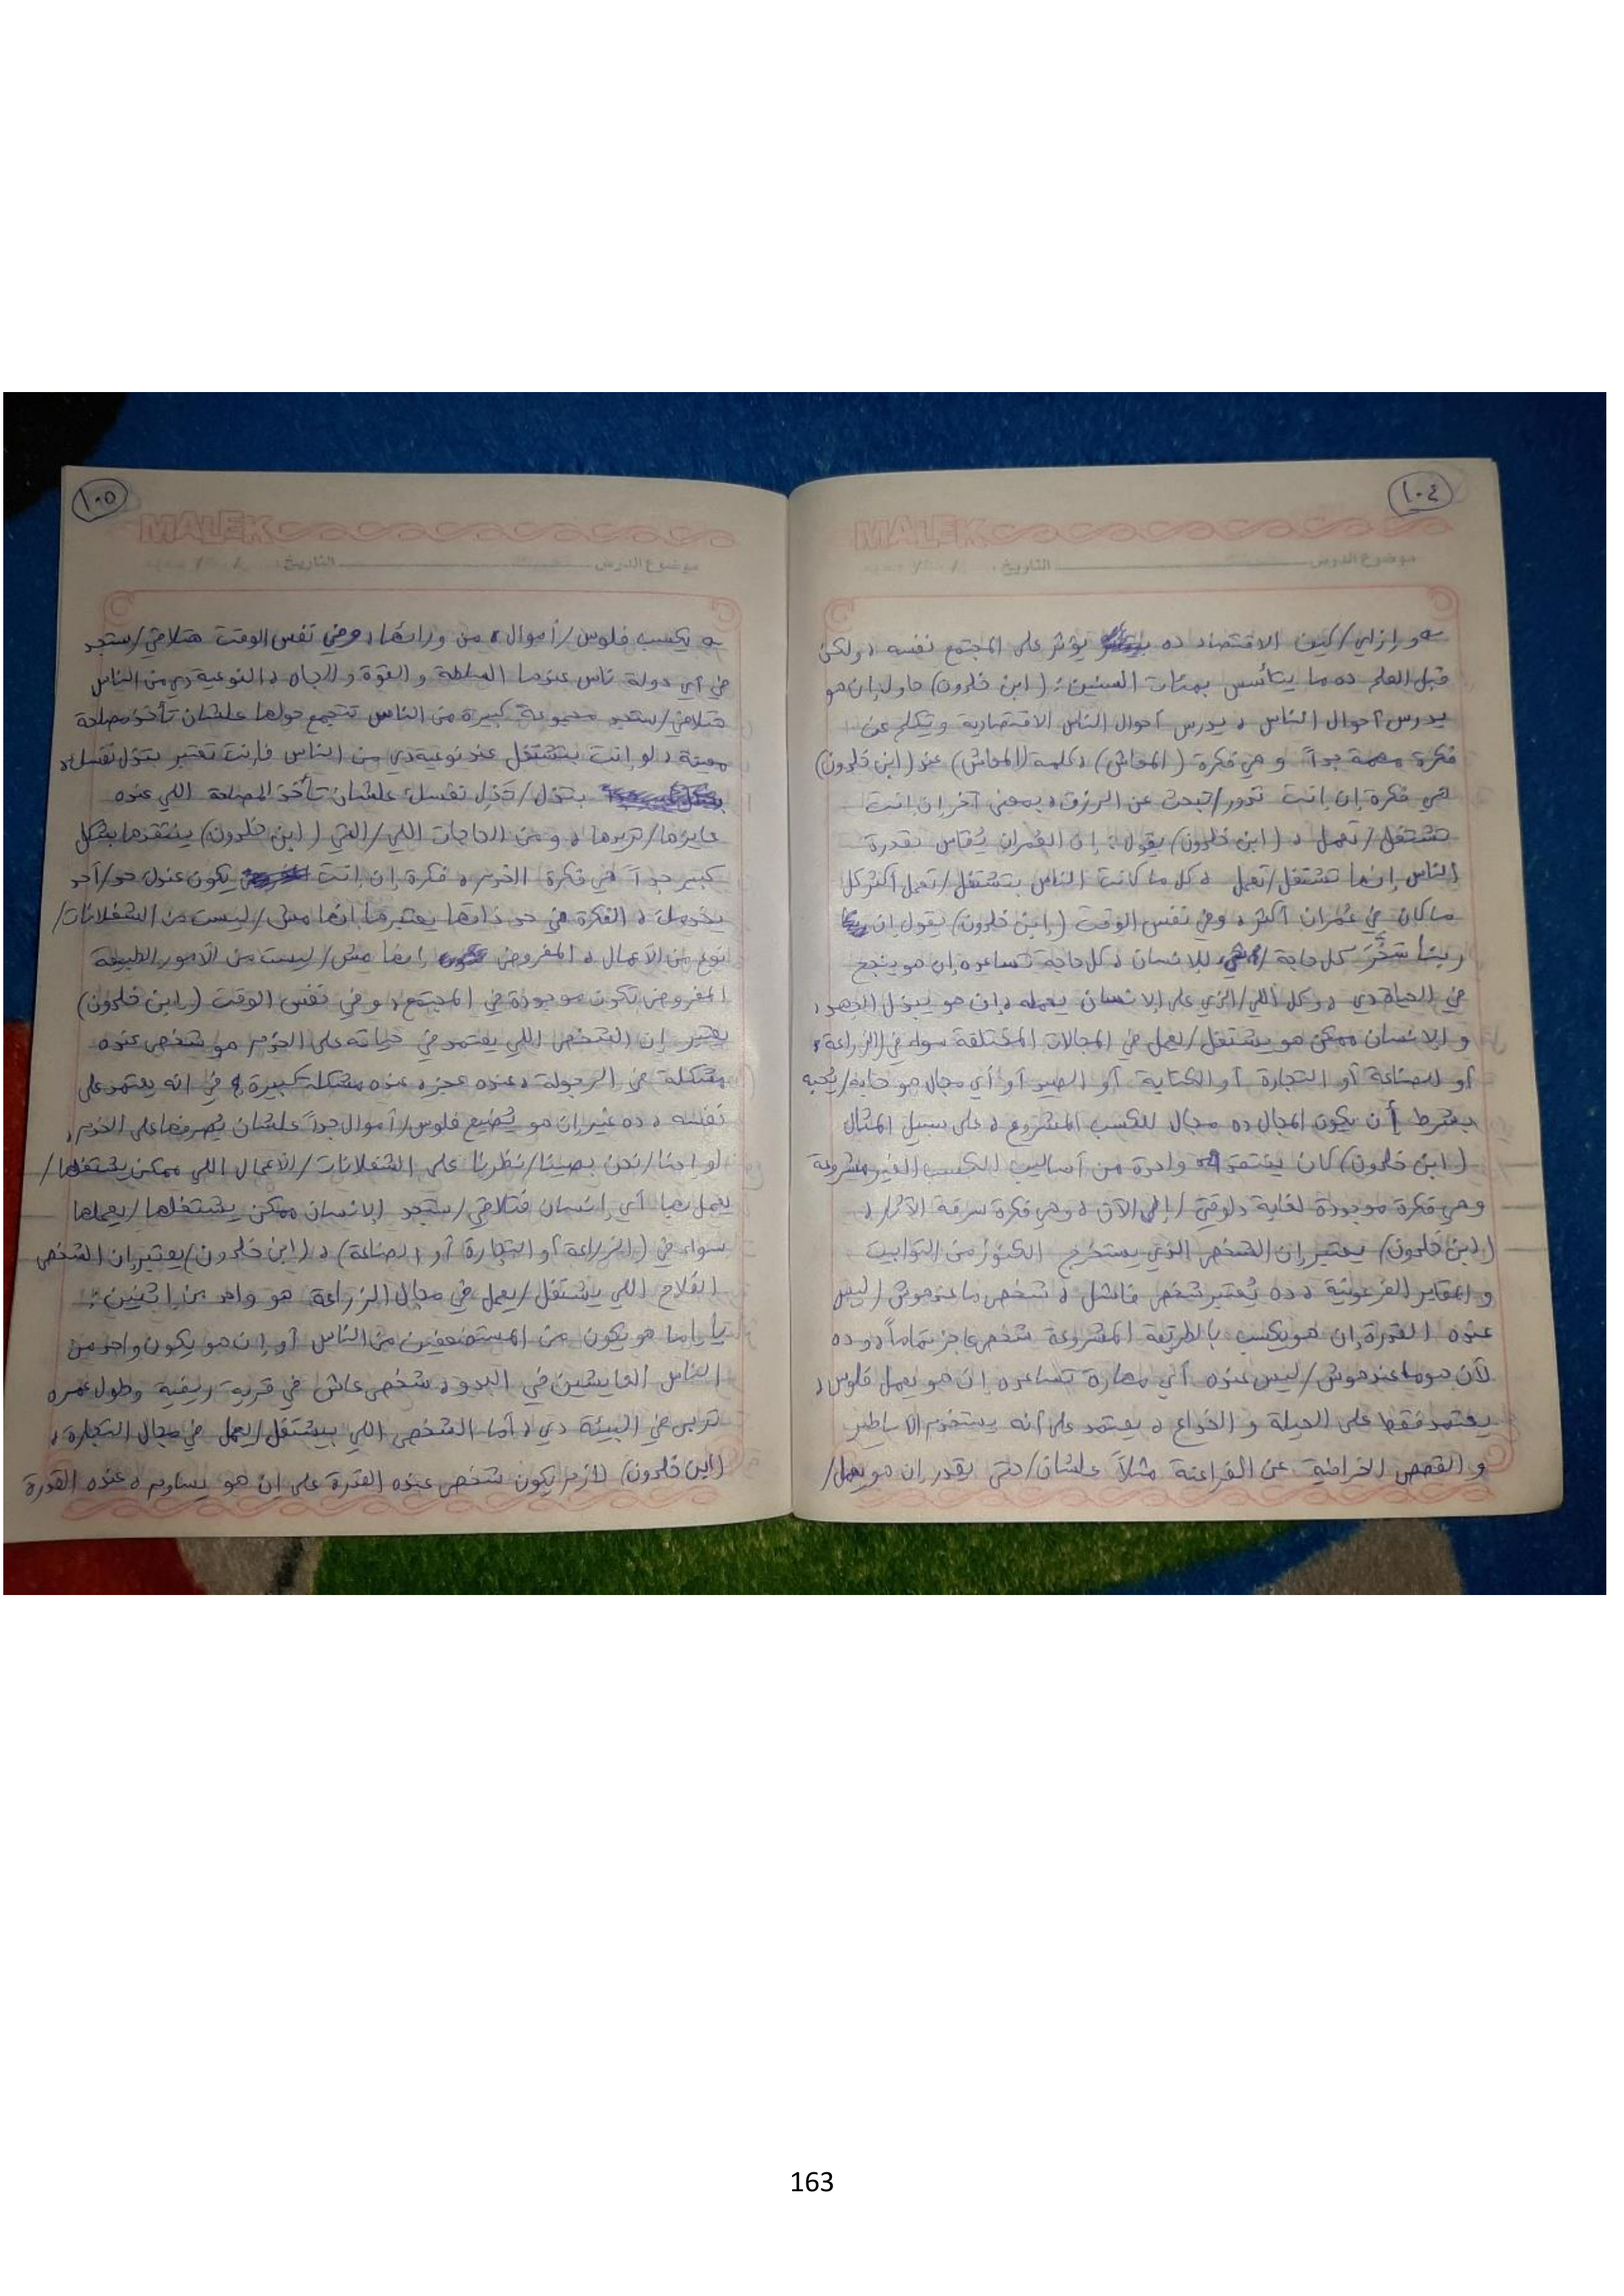 ١٠٤
MALEK
موضوع الدرس التاريخ: / /
و إزاي/كيف الاقتصاد ده يؤثر على المجتمع نفسه، ولكن
قبل العلم ده ما يتأسس بمئات السنين: (ابن خلدون) حاول إن هو
يدرس أحوال الناس، يدرس أحوال الناس الاقتصادية ويتكلم عن
فكرة مهمة جداً وهي فكرة (المعاش)، كلمة (المعاش) عند (ابن خلدون)
هي فكرة إن إنت تدور/تبحث عن الرزق، بمعنى آخر إن إنت
تشتغل/تعمل، (ابن خلدون) يقول: إن العُمران يُقاس بقدرة
الناس إنها تشتغل/تعمل، كل ما كانت الناس بتشتغل/تعمل أكثر كل
ما كان في عُمران أكثر، وفي نفس الوقت (إبن خلدون) يقول إن
ربنا سَخَّرَ كل حاجة/شيء للإنسان، كل حاجة تساعده إن هو ينجح
في الحياة دي، وكل اللي/الذي على الإنسان يعمله، إن هو يبذل الجهد،
و الإنسان ممكن هو يشتغل/يعمل في المجالات المختلفة سواء في (الزراعة،
أو الصناعة أو التجارة أو الكتابة أو الصيد أو أي مجال هو حابه/يُحبه
بشرط أن يكون المجال ده مجال للكسب المشروع، على سبيل المثال
(ابن خلدون) كان ينتقد واحدة من أساليب الكسب الغير مشروعة
وهي فكرة موجودة لغاية دلوقتي/إلى الآن، وهي فكرة سرقة الآثار،
(ابن خلدون) يعتبر إن الشخص الذي يستخرج الكنوز من التوابيت
و المقابر الفرعونية، ده يُعتبر شخص فاشل، شخص ما عندهوش/ليس
عنده القدرة إن هو يكسب بالطريقة المشروعة شخص عاجز تماماً، وده
لأن هو ما عندهوش/ليس عنده أي مهارة تساعده إن هو يعمل فلوس،
يعتمد فقط على الحيلة و الخداع، يعتمد على أنه يستخدم الأساطير
و القصص الخرافية عن الفراعنة مثلاً علشان/حتى يقدر إن هو يعمل/
١٠٥
MALEK
موضوع الدرس التاريخ: / /
يكسب فلوس/أموال، من ورائها، وفي نفس الوقت هتلاقي/ستجد
في أي دولة ناس عندها السلطة و القوة و الجاه، النوعية دي من الناس
هتلاقي/ستجد مجموعة كبيرة من الناس تتجمع حولها علشان تأخذ مصلحة
معينة، لو إنت بتشتغل عند نوعية دي من الناس فإنت تعتبر بتذل نفسك،
بتذل/تذل نفسك علشان تأخذ المصلحة اللي عنده
عايزها/تريدها، و من الحاجات اللي/التي (ابن خلدون) ينتقدها بشكل
كبير جداً هي فكرة الخدم، فكرة إن إنت يكون عندك حد/أحد
يخدمك، الفكرة في حد ذاتها يعتبرها إنها مش/ليست من الشغلانات/
نوع من الأعمال، المفروض إنها مش/ليست من الأمور الطبيعة
المفروض تكون موجودة في المجتمع، وفي نفس الوقت (ابن خلدون)
يعتبر إن الشخص اللي يعتمد في حياته على الخدم هو شخص عنده
مشكلة في الرجولة، عنده عجز، عنده مشكلة كبيرة في انه يعتمد على
نفسه، ده غير إن هو يُضيع فلوس/أموال جداً علشان يصرفها على الخدم،
لو احنا/نحن بصينا/نظرنا على الشغلانات/الأعمال اللي ممكن يشتغلها/
يعمل بها أي إنسان فتلاقي/ستجد الإنسان ممكن يشتغلها/يعملها
سواء في (الزراعة أو التجارة أو الصناعة)، (ابن خلدون) يعتبر إن الشخص
الفلاح اللي يشتغل/يعمل في مجال الزراعة هو واحد من إثنين:
يا إما هو يكون من المستضعفين من الناس أو إن هو يكون واحد من
الناس العايشين في البدو، شخص عاش في قرية ريفية وطول عمره
تربى في البيئة دي، أما الشخص اللي بيشتغل/يعمل في مجال التجارة،
(ابن خلدون) لازم يكون شخص عنده القدرة على إن هو يساوم، عنده القدرة
163